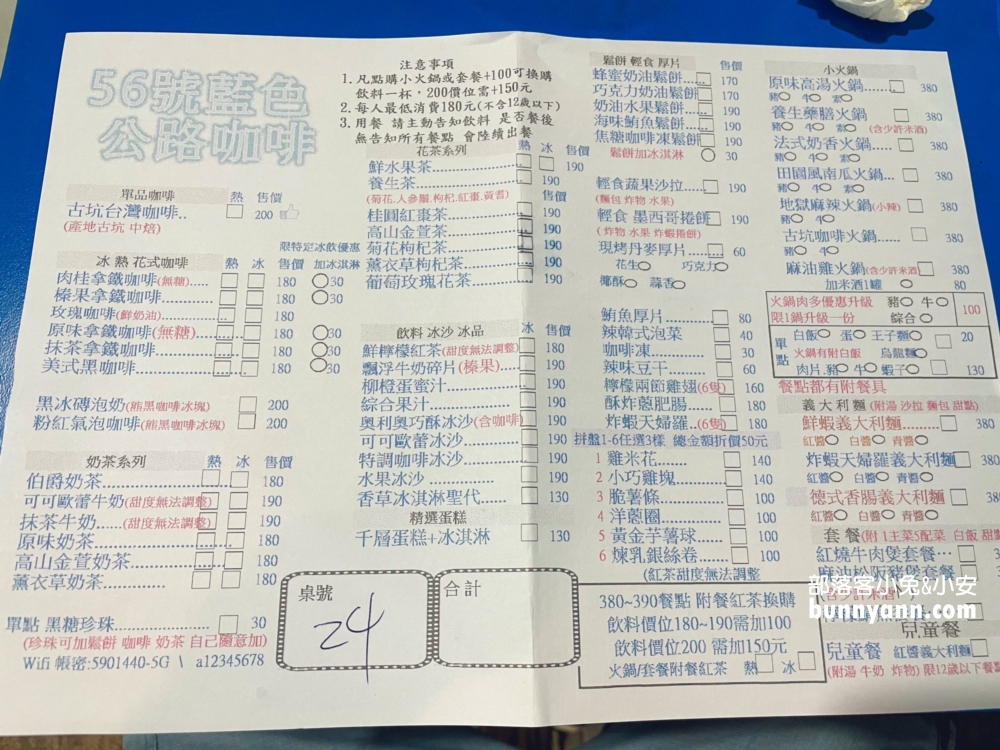 56號藍色
公路咖啡
注意事項
1. 凡點購小火鍋或套餐+100可換購
飲料一杯，200價位需+150元
2. 每人最低消費180元(不含12歲以下)
3. 用餐 請主動告知飲料 是否餐後
無告知所有餐點 會陸續出餐
單品咖啡 熱 售價
古坑台灣咖啡.. 200
(產地古坑 中焙)
限特定冰飲優惠
冰 熱 花式咖啡 熱 冰 售價 加冰淇淋
肉桂拿鐵咖啡(無糖)..... 180 30
榛果拿鐵咖啡............ 180 30
玫瑰咖啡(鮮奶油)....... 180
原味拿鐵咖啡(無糖)..... 180 30
抹茶拿鐵咖啡............ 180 30
美式黑咖啡............... 180 30
黑冰磚泡奶(熊黑咖啡冰塊) 200
粉紅氣泡咖啡(熊黑咖啡冰塊) 200
奶茶系列 熱 冰 售價
伯爵奶茶............... 180
可可歐蕾牛奶(甜度無法調整) 190
抹茶牛奶.....(甜度無法調整) 190
原味奶茶............... 180
高山金萱奶茶............ 180
薰衣草奶茶............ 180
單點 黑糖珍珠............... 30
(珍珠可加鬆餅 咖啡 奶茶 自己隨意加)
Wifi 帳密:5901440-5G \ a12345678
花茶系列 熱 冰 售價
鮮水果茶............ 190
養生茶............... 190
(菊花.人參鬚.枸杞.紅棗.黃耆)
桂圓紅棗茶............ 190
高山金萱茶............ 190
菊花枸杞茶............ 190
薰衣草枸杞茶......... 190
葡萄玫瑰花茶......... 190
飲料 冰沙 冰品 冰 售價
鮮檸檬紅茶(甜度無法調整) 180
飄浮牛奶碎片(榛果).... 190
柳橙蜜汁............... 190
綜合果汁............... 190
奧利奧巧酥冰沙(含咖啡) 190
可可歐蕾冰沙......... 190
特調咖啡冰沙......... 190
水果冰沙 ............ 190
香草冰淇淋聖代...... 130
精選蛋糕
千層蛋糕+冰淇淋 130
桌號
24
合計
鬆餅 輕食 厚片 售價
蜂蜜奶油鬆餅.... 170
巧克力奶油鬆餅 170
奶油水果鬆餅.... 190
海味鮪魚鬆餅.... 190
焦糖咖啡凍鬆餅 190
鬆餅加冰淇淋 30
輕食蔬果沙拉..... 190
(麵包 炸物 水果)
輕食 墨西哥捲餅 190
(炸物 水果 炸蝦捲餅)
現烤丹麥厚片..... 60
花生 巧克力
椰酥 蒜香
鮪魚厚片......... 80
辣韓式泡菜 40
咖啡凍............ 30
辣味豆干......... 60
檸檬兩節雞翅(6隻) 160
酥炸蔥肥腸...... 180
炸蝦天婦羅..(6隻) 180
拼盤1-6任選3樣 總金額折價50元
1 雞米花........ 140
2 小巧雞塊....... 140
3 脆薯條......... 100
4 洋蔥圈......... 100
5 黃金芋薯球..... 100
6 煉乳銀絲卷..... 100
(紅茶甜度無法調整
380~390餐點 附餐紅茶換購
飲料價位180~190需加100
飲料價位200 需加150元
火鍋/套餐附餐紅茶 熱 冰
小火鍋 售價
原味高湯火鍋...... 380
豬 牛 素
養生藥膳火鍋 380
豬 牛 素 (含少許米酒)
法式奶香火鍋.... 380
豬 牛 素
田園風南瓜火鍋... 380
豬 牛 素
地獄麻辣火鍋(小辣) 380
豬 牛
古坑咖啡火鍋..... 380
豬 牛
麻油雞火鍋(含少許米酒 380
加米酒1罐 80
火鍋肉多優惠升級 豬 牛
限1鍋升級一份 綜合 100
單點
白飯 蛋 王子麵 20
火鍋有附白飯 烏龍麵
肉片.豬 牛 蝦子 130
餐點都有附餐具
義大利麵 (附湯 沙拉 麵包 甜點)
鮮蝦義大利麵....... 380
紅醬 白醬 青醬
炸蝦天婦羅義大利麵 380
紅醬 白醬 青醬
德式香腸義大利麵 38
紅醬 白醬 青醬
套 餐(附1主菜5配菜 白飯 甜
紅燒牛肉煲套餐…
麻油松阪豬煲套餐
部落客小兔&小安
bunnyann.com
兒童餐
兒童餐 紅醬義大利麵
(附湯 牛奶 炸物) 限12歲以下餐點